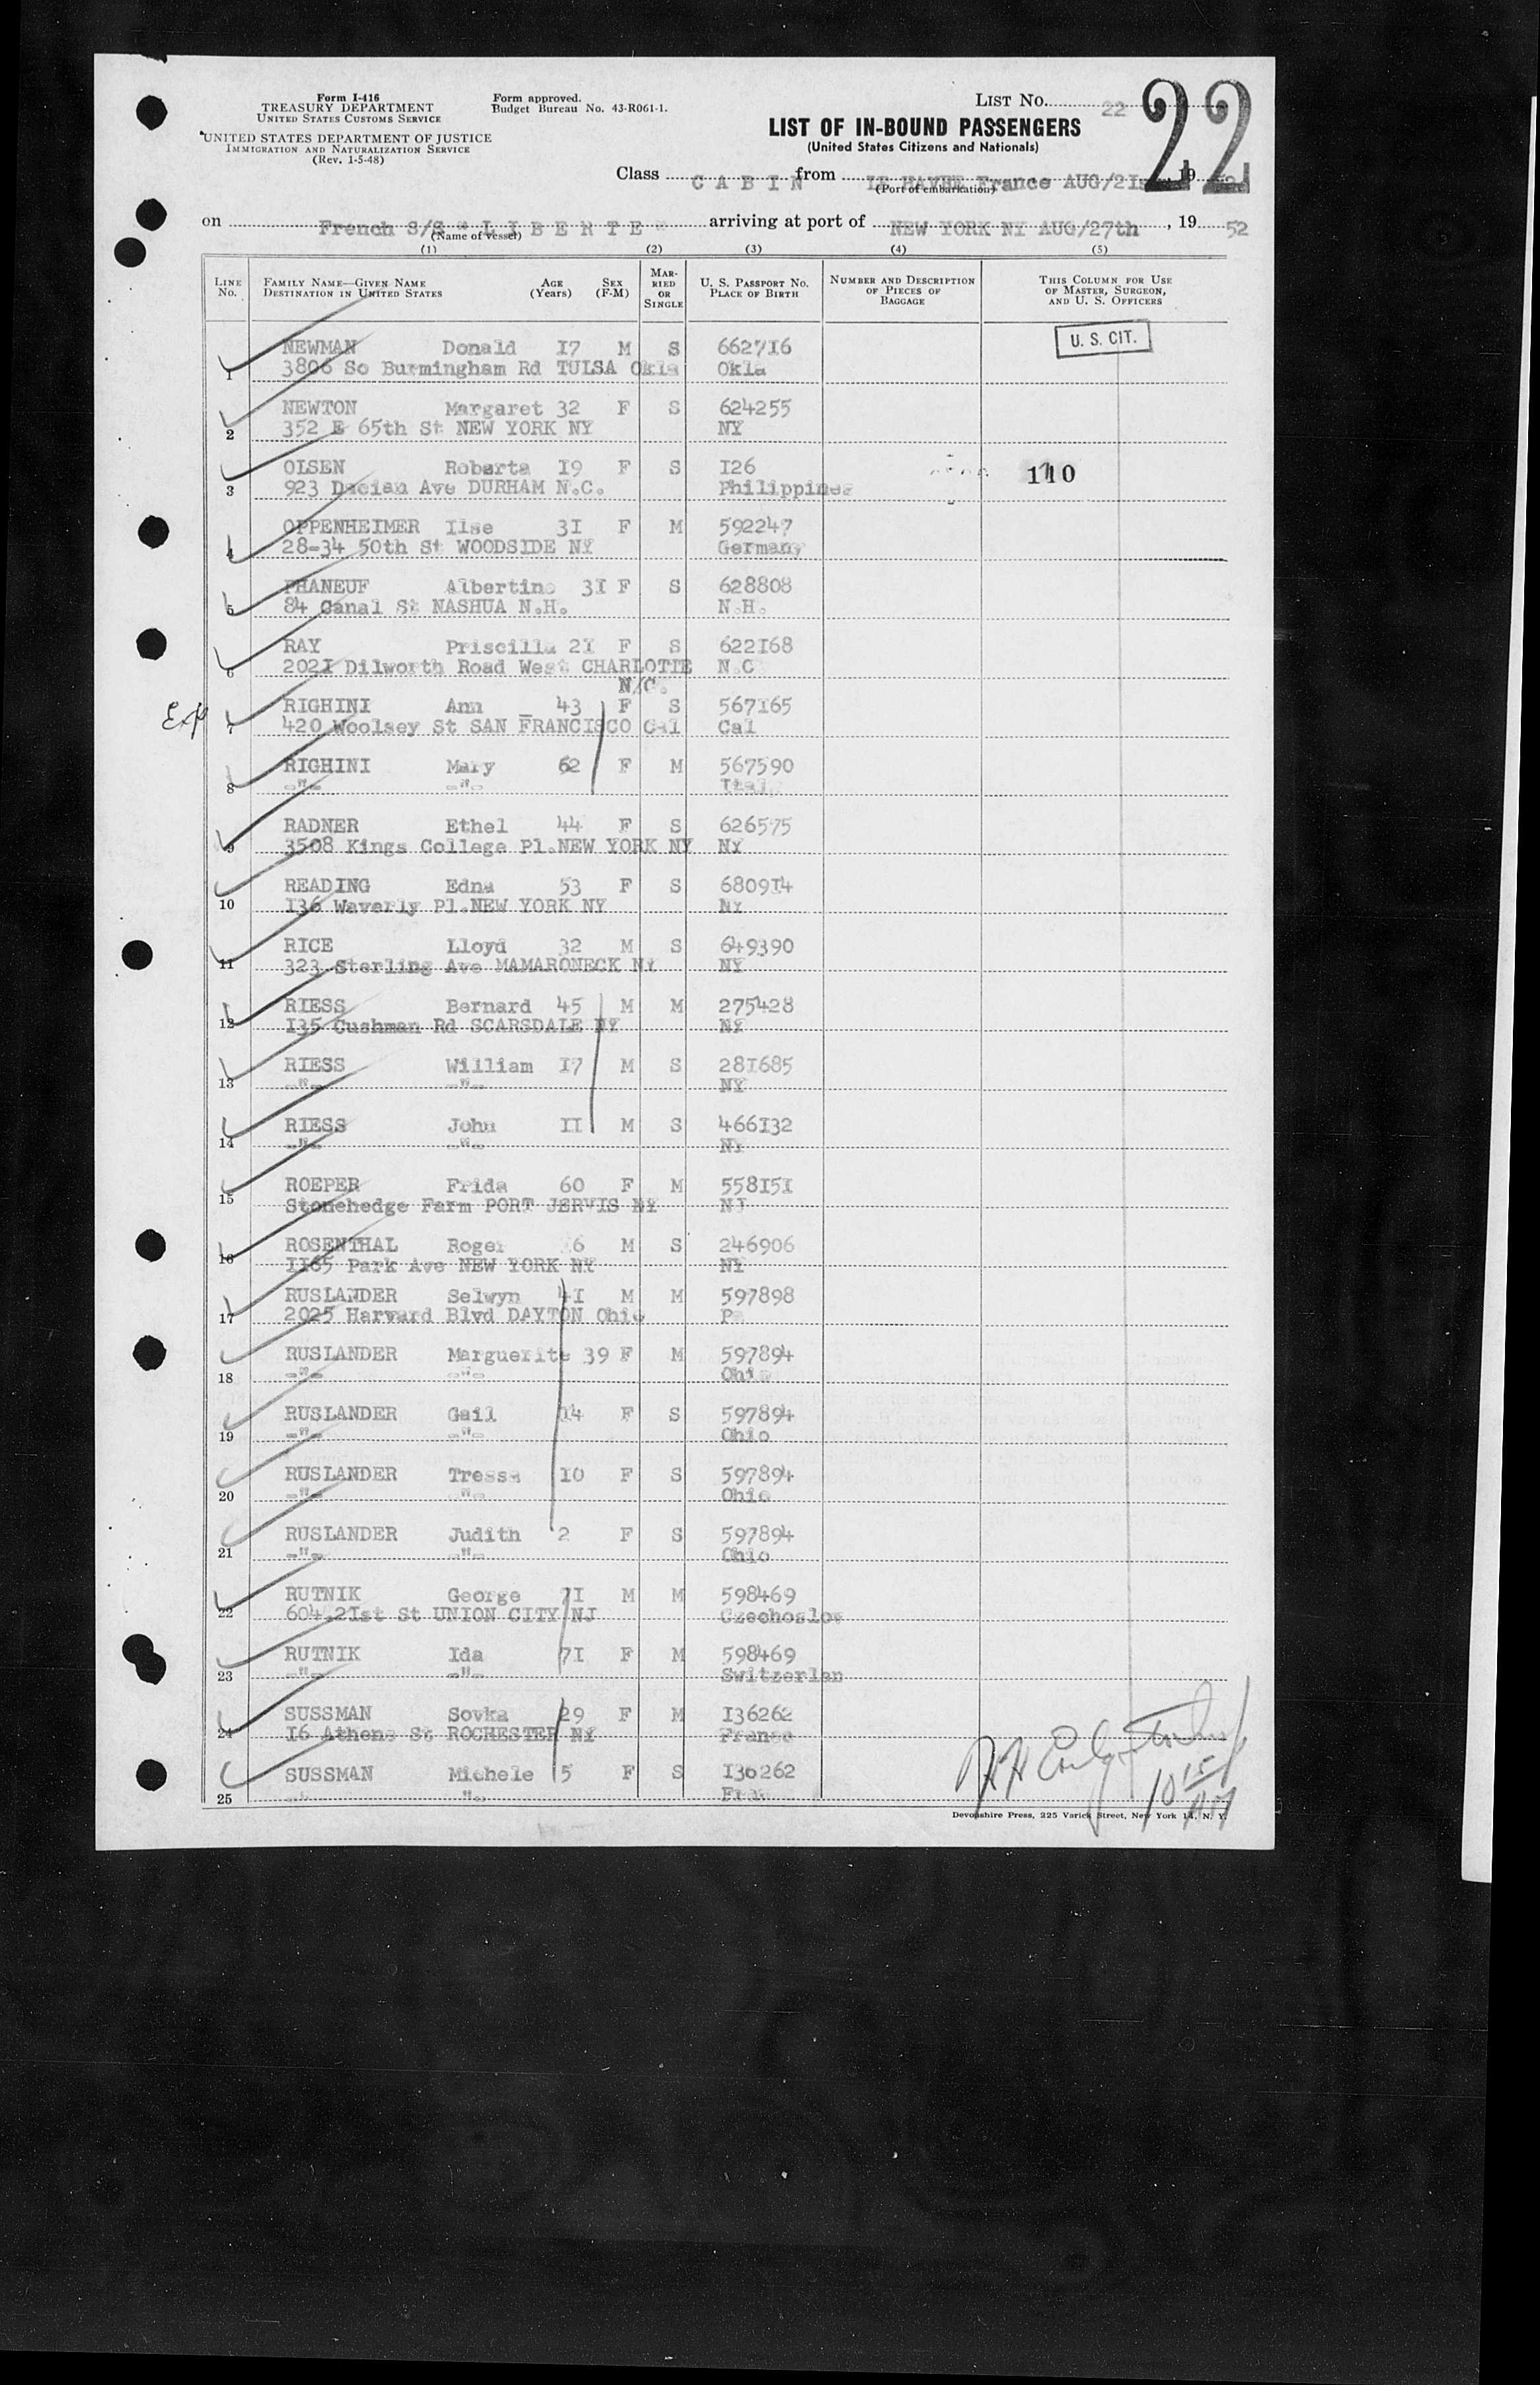 Form I-416
TREASURY DEPARTMENT
UNITED STATES CUSTOMS SERVICE
UNITED STATES DEPARTMENT OF JUSTICE
IMMIGRATION AND NATURALIZATION SERVICE
(Rev. 1-5-48)
Form approved.
Budget Bureau No. 43-R061-1.
LIST No. 22
22
LIST OF IN-BOUND PASSENGERS
(United States Citizens and Nationals)
Class C A B I N from LE HAVRE France AUG/21st 19
(Port of embarkation)
on French S/S " L I B E R T E " arriving at port of NEW YORK NY AUG/27th, 19 52
(Name of vessel)
(1) (2) (3) (4) (5)
LINE No. FAMILY NAME—GIVEN NAME DESTINATION IN UNITED STATES AGE (Years) SEX (F-M) MARRIED OR SINGLE U. S. PASSPORT No. PLACE OF BIRTH NUMBER AND DESCRIPTION OF PIECES OF BAGGAGE THIS COLUMN FOR USE OF MASTER, SURGEON, AND U. S. OFFICERS
U. S. CIT.
NEWMAN Donald I7 M S 6627I6
1 3806 So Burmingham Rd TULSA Okla Okla
NEWTON Margaret 32 F S 624255
2 352 E 65th St NEW YORK NY NY
OLSEN Roberta I9 F S I26 110
3 923 Dacian Ave DURHAM N.C. Philippines
OPPENHEIMER Ilse 3I F M 592247
4 28-34 50th St WOODSIDE NY Germany
PHANEUF Albertine 3I F S 628808
5 84 Canal St NASHUA N.H. N.H.
RAY Priscilla 2I F S 622I68
6 202I Dilworth Road West CHARLOTTE N.C
N/C.
RIGHINI Ann 43 F S 567I65
7 420 Woolsey St SAN FRANCISCO Cal Cal
RIGHINI Mary 62 F M 567590
8 -"- -"- Italy
RADNER Ethel 44 F S 626575
9 3508 Kings College Pl.NEW YORK NY NY
READING Edna 53 F S 6809I4
10 I36 Waverly Pl.NEW YORK NY NY
RICE Lloyd 32 M S 649390
11 323 Sterling Ave MAMARONECK NY NY
RIESS Bernard 45 M M 275428
12 I35 Cushman Rd SCARSDALE NY NY
RIESS William I7 M S 28I685
13 -"- -"- NY
RIESS John II M S 466I32
14 -"- -"- NY
ROEPER Frida 60 F M 558I5I
15 Stonehedge Farm PORT JERVIS NY NJ
ROSENTHAL Roger 6 M S 246906
16 II65 Park Ave NEW YORK NY NY
RUSLANDER Selwyn 4I M M 597898
17 2025 Harvard Blvd DAYTON Ohio Pa
RUSLANDER Marguerite 39 F M 597894
18 -"- -"- Ohio
RUSLANDER Gail I4 F S 597894
19 -"- -"- Ohio
RUSLANDER Tressa I0 F S 597894
20 -"- -"- Ohio
RUSLANDER Judith 2 F S 597894
21 -"- -"- Ohio
RUTNIK George 7I M M 598469
22 604 2Ist St UNION CITY NJ Czechoslov
RUTNIK Ida 7I F M 598469
23 -"- -"- Switzerlan
SUSSMAN Sovka 29 F M I36262
24 I6 Athens St ROCHESTER NY France
SUSSMAN Michele 5 F S I36262
25 -"- "- Fra
10 15 AM
Devonshire Press, 225 Varick Street, New York 14, N. Y.